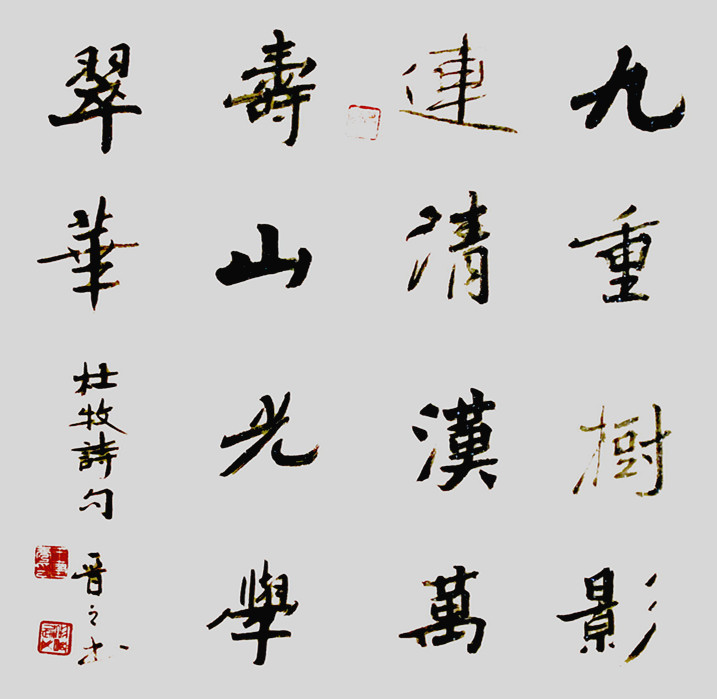 九重樹影
連清漢萬
壽山光學
翠華
杜牧詩句
晋之书